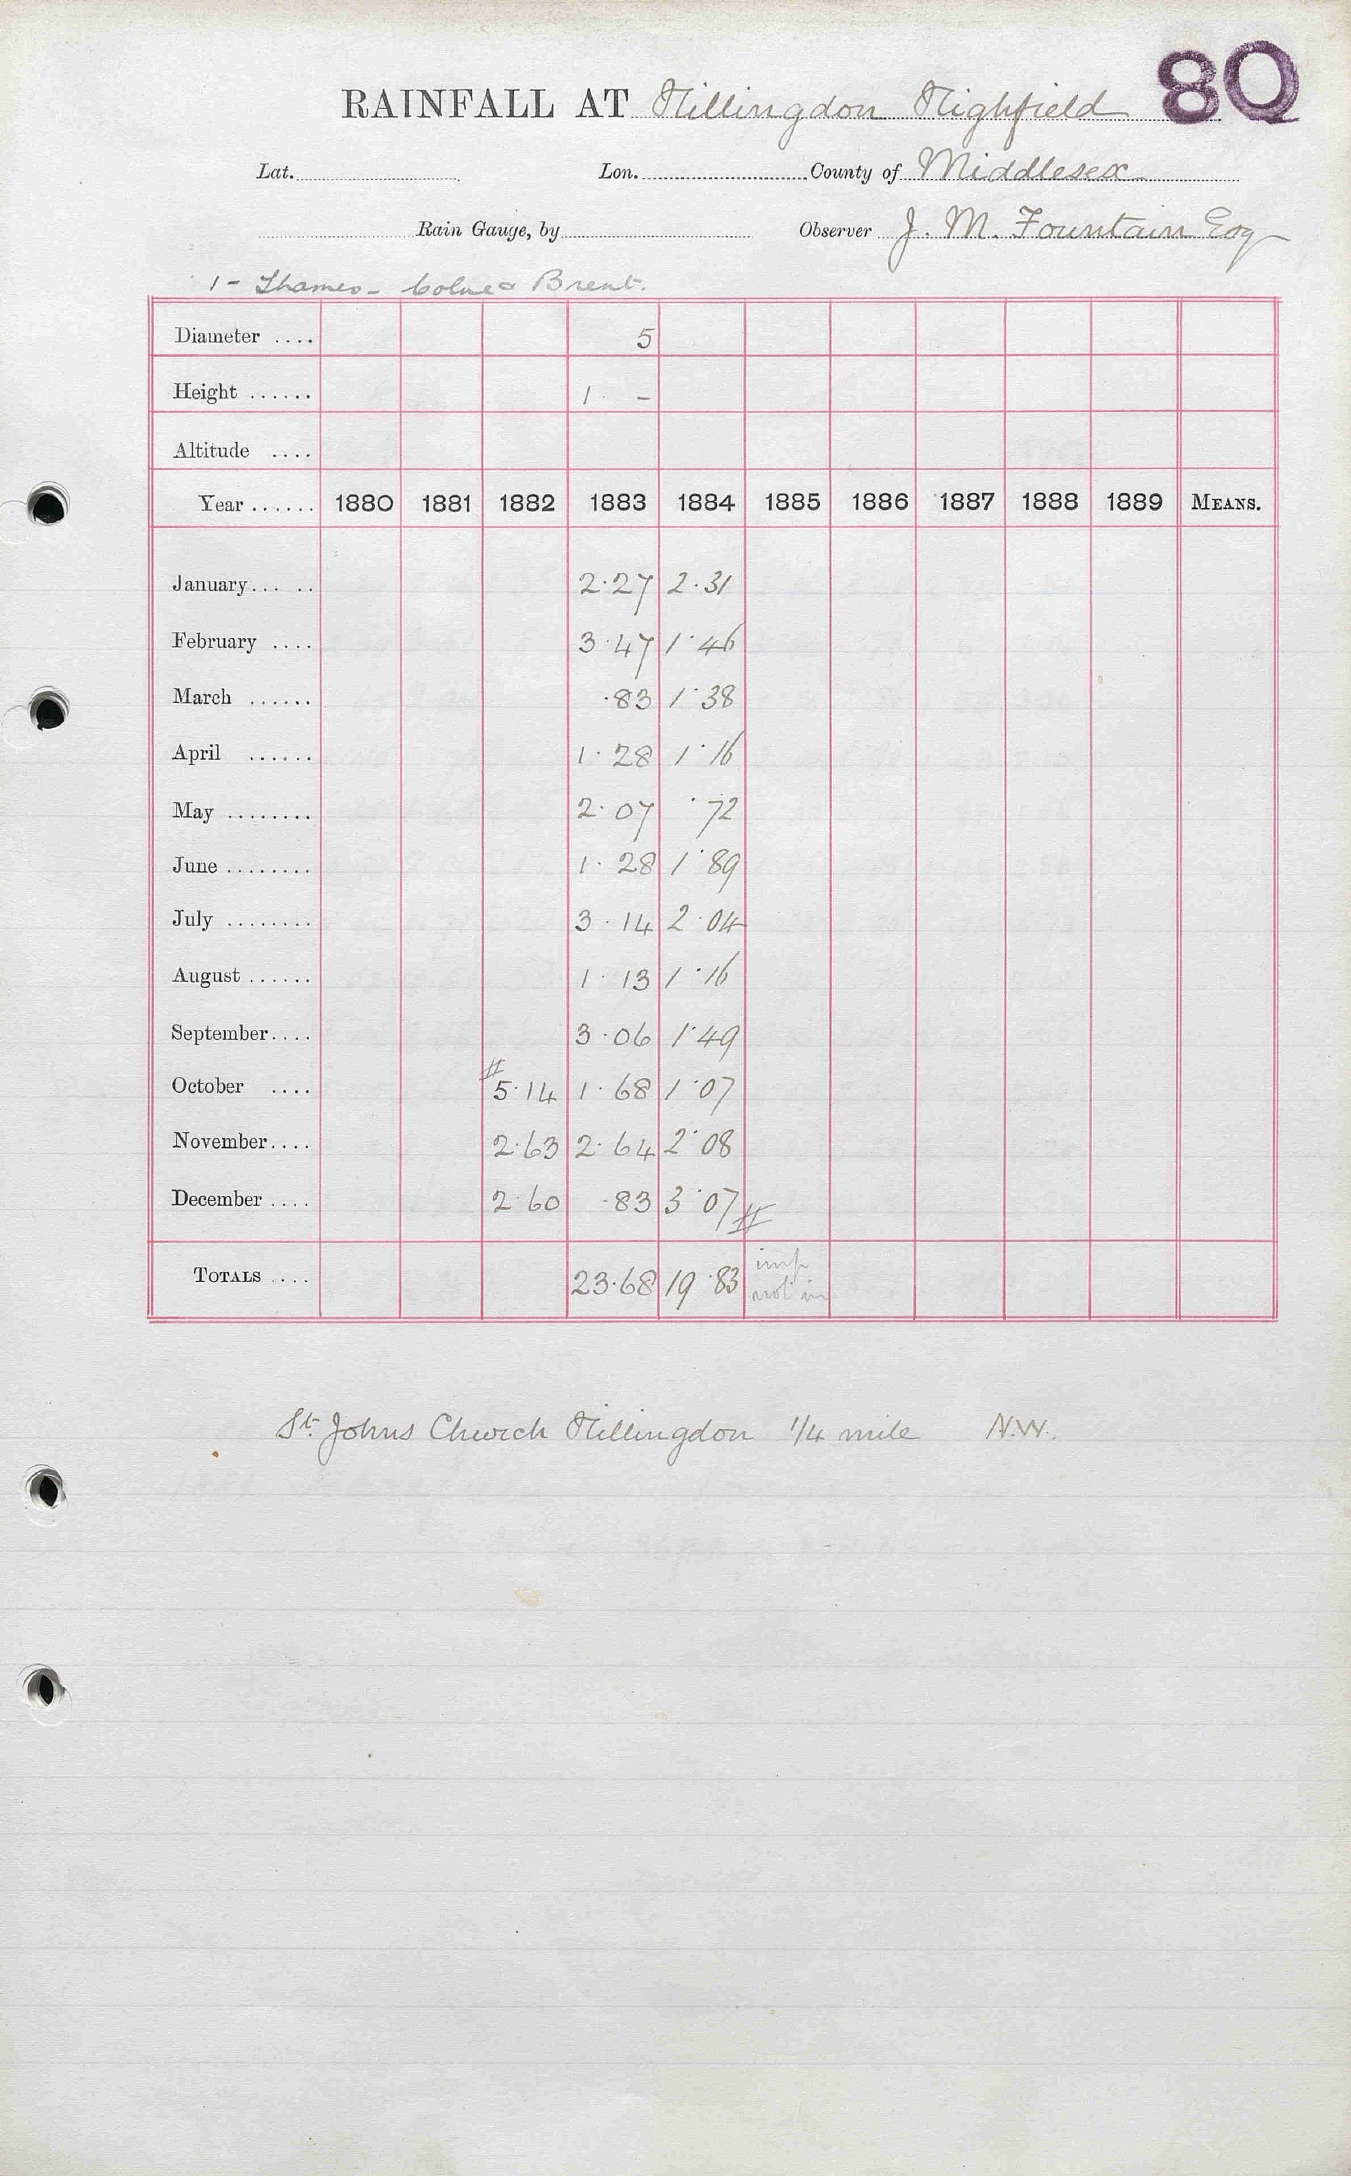 80
RAINFALL AT Hillingdon Highfield
Lat. Lon. County of Middlesex
Rain Gauge, by Observer J. M. Fountain Esq
1 - Thames - Colne & Brent.
Diameter .... 5
Height ...... 1 · -
Altitude ....
Year ...... 1880 1881 1882 1883 1884 1885 1886 1887 1888 1889 MEANS.
January... .. 2·27 2·31
February .... 3·47 1·46
March ...... ·83 1·38
April ...... 1·28 1·16
May ........ 2·07 ·72
June ........ 1·28 1·89
July ........ 3·14 2·04
August ...... 1·13 1·16
September.... 3·06 1·49
October .... # 5·14 1·68 1·07
November.... 2·63 2·64 2·08
December .... 2·60 ·83 3·07 #
TOTALS .... 23·68 19·83 imp
not in
St. Johns Church Hillingdon 1/4 mile N.W.